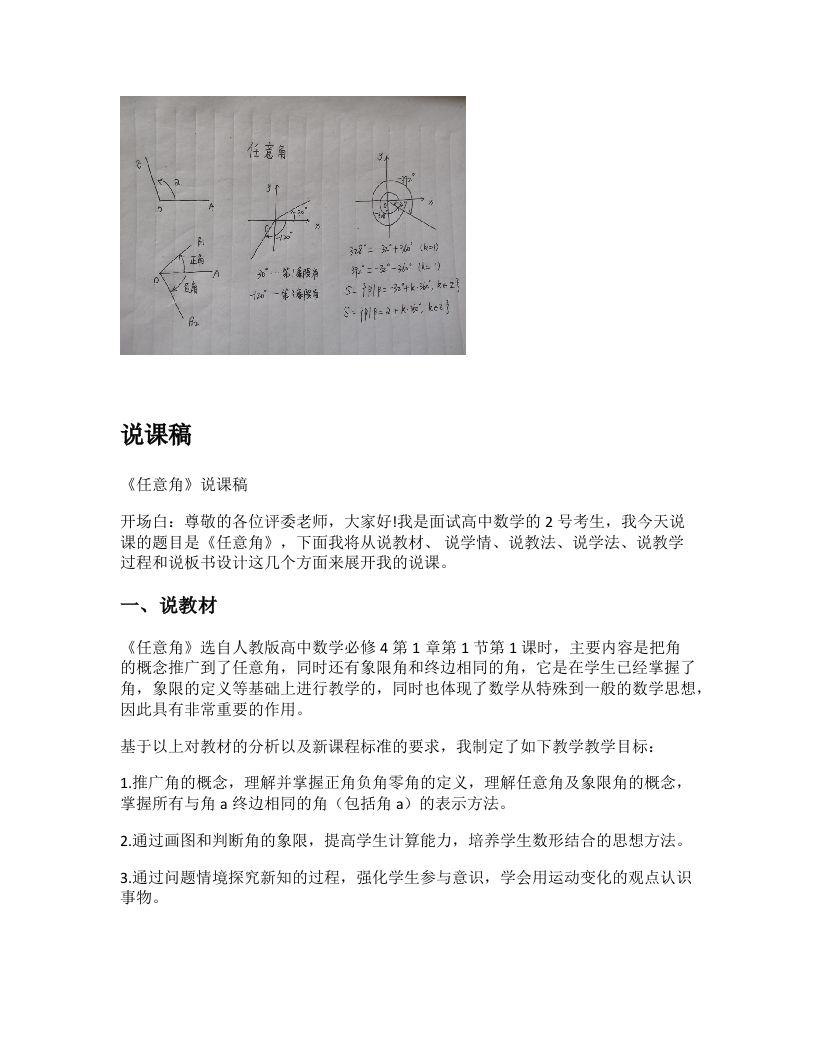 任意角
B
α
O
A
B₁
正角
O
A
负角
B₂
y
30°
x
-120°
30°…第1象限角
-120°—第3象限角
y
-392°
x
328°= -32°+360° (k=1)
392°=-32°-360° (k= 1)
S= {β|β= -32°+k·360°, k∈Z}
S= {β|β=α+k·360°, k∈Z}
说课稿
《任意角》说课稿
开场白：尊敬的各位评委老师，大家好!我是面试高中数学的 2 号考生，我今天说
课的题目是《任意角》，下面我将从说教材、 说学情、说教法、说学法、说教学
过程和说板书设计这几个方面来展开我的说课。
一、说教材
《任意角》选自人教版高中数学必修 4 第 1 章第 1 节第 1 课时，主要内容是把角
的概念推广到了任意角，同时还有象限角和终边相同的角，它是在学生已经掌握了
角，象限的定义等基础上进行教学的，同时也体现了数学从特殊到一般的数学思想，
因此具有非常重要的作用。
基于以上对教材的分析以及新课程标准的要求，我制定了如下教学教学目标：
1.推广角的概念，理解并掌握正角负角零角的定义，理解任意角及象限角的概念，
掌握所有与角 a 终边相同的角（包括角 a）的表示方法。
2.通过画图和判断角的象限，提高学生计算能力，培养学生数形结合的思想方法。
3.通过问题情境探究新知的过程，强化学生参与意识，学会用运动变化的观点认识
事物。